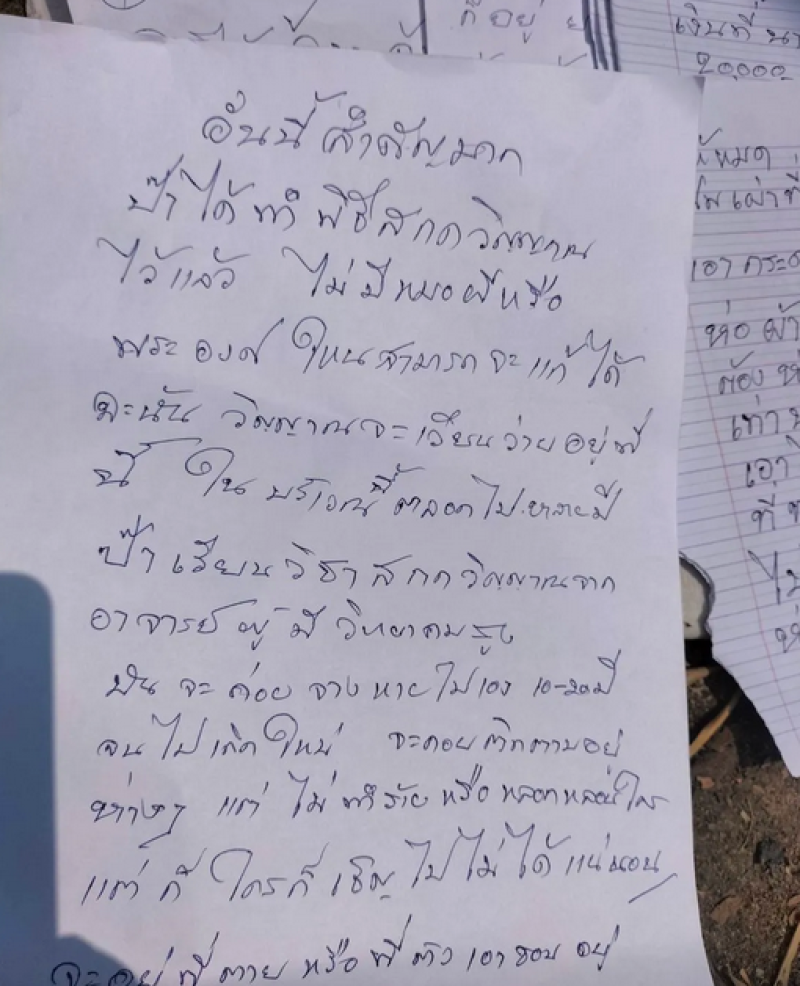 ก็อยู่
เงินที่
20,000
อันนี้สำคัญมาก
ป๊าได้ทำพิธีสกดวิญญาณ
ไว้แล้ว ไม่มีหมอผีหรือ
พระองค์ใหนสามารถจะแก้ได้
ฉะนั้น วิญญาณจะเวียนว่ายอยู่ที่
นี้ ในบริเวณนี้ตลอดไปหลายปี
ป๊าเรียนวิชาสกดวิญญาณจาก
อาจารย์ผู้มีวิทยาคมสูง
มันจะค่อยจางหายไปเอง 10-20 ปี
จนไปเกิดใหม่ จะคอยติดตามอยู่
ห่างๆ แต่ไม่ทำร้ายหรือหลอกหลอนใคร
แต่ก็ใครก็เชิญไปไม่ได้แน่นอน
จะอยู่ที่ตายหรือที่ตัวเอาชอบอยู่
ให้หมด
เอากระด
ห่อผ้า
ต้อง
เอา
ที่